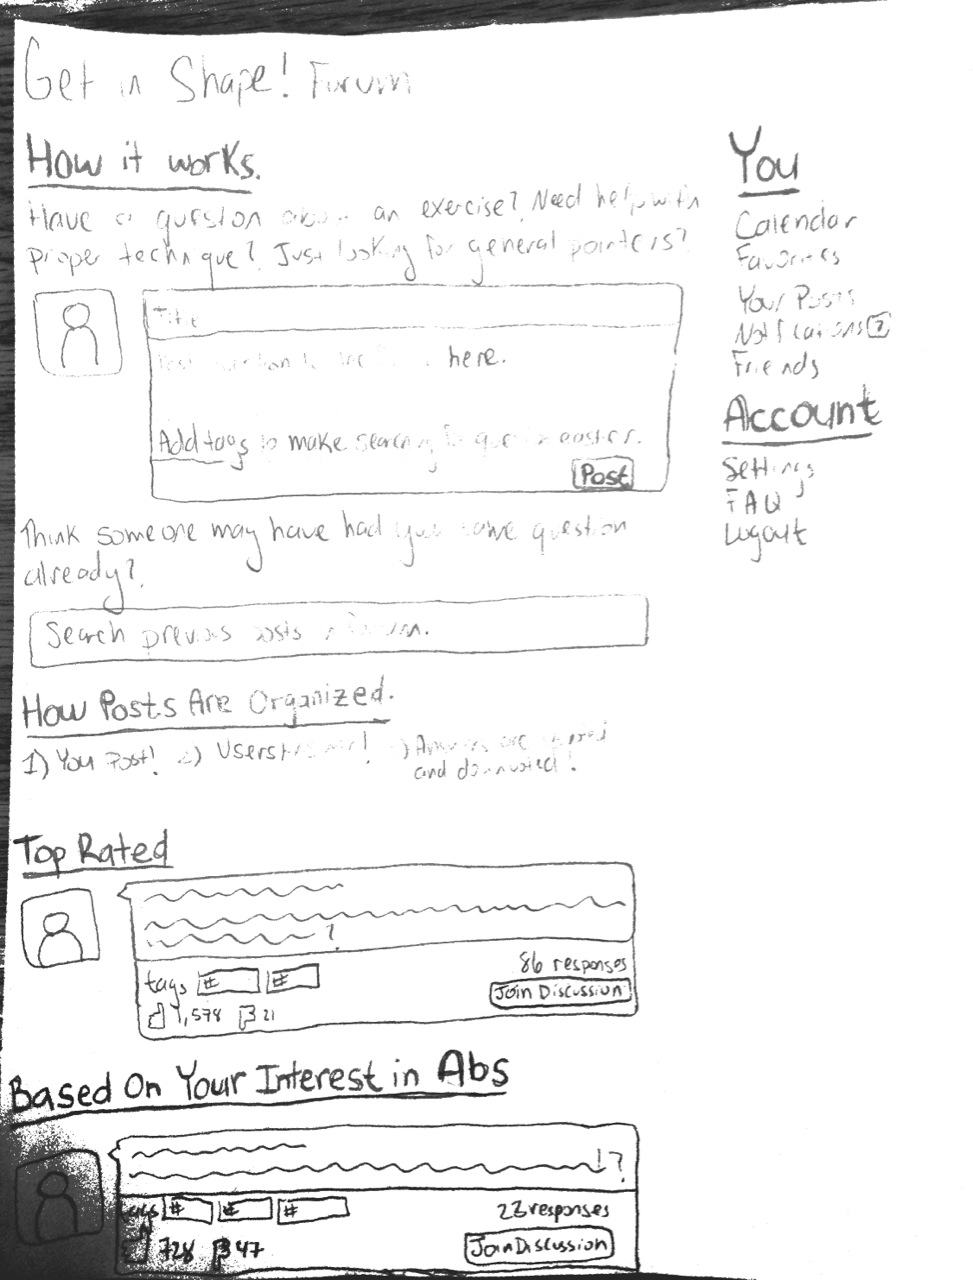 Get in Shape! Forum
How it works.
Have a question about an exercise? Need help with
proper technique? Just looking for general pointers?
Title
here.
Add tags to make searching for question easier.
Post
Think someone may have had your same question
already?
Search previous posts in forum.
How Posts Are Organized.
1) You Post! 2) Users ! 3) Answers are upvoted
and downvoted!
Top Rated
?
tags # #
86 responses
Join Discussion
1,578 21
Based On Your Interest in Abs
!?
tags # # #
23 responses
728 47
Join Discussion
You
Calendar
Favorites
Your Posts
Notifications
Friends
Account
Settings
FAQ
Logout